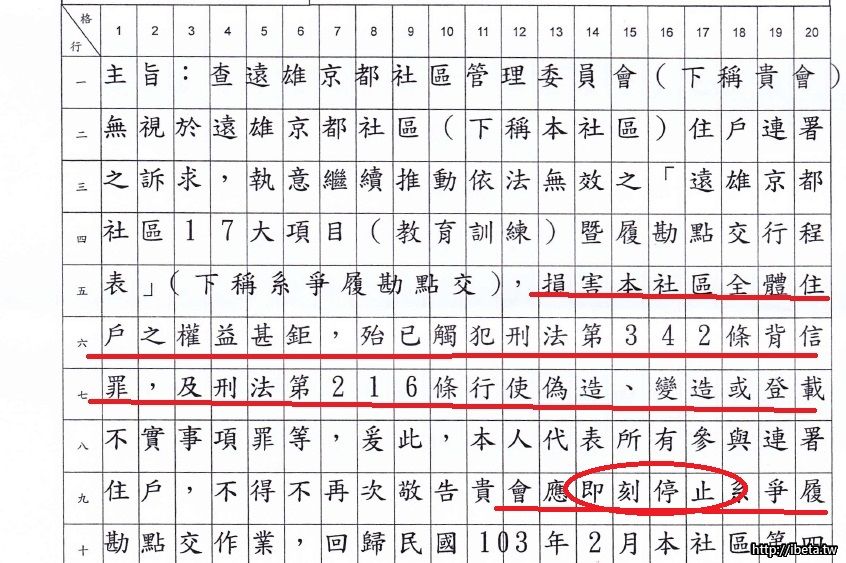 格 行 1 2 3 4 5 6 7 8 9 10 11 12 13 14 15 16 17 18 19 20
一 主旨：查遠雄京都社區管理委員會（下稱貴會）
二 無視於遠雄京都社區（下稱本社區）住戶連署
三 之訴求，執意繼續推動依法無效之「遠雄京都
四 社區17大項目（教育訓練）暨履勘點交行程
五 表」（下稱系爭履勘點交），損害本社區全體住
六 戶之權益甚鉅，殆已觸犯刑法第342條背信
七 罪，及刑法第216條行使偽造、變造或登載
八 不實事項罪等，爰此，本人代表所有參與連署
九 住戶，不得不再次敬告貴會應即刻停止系爭履
十 勘點交作業，回歸民國103年2月本社區第四
http://ibeta.tw